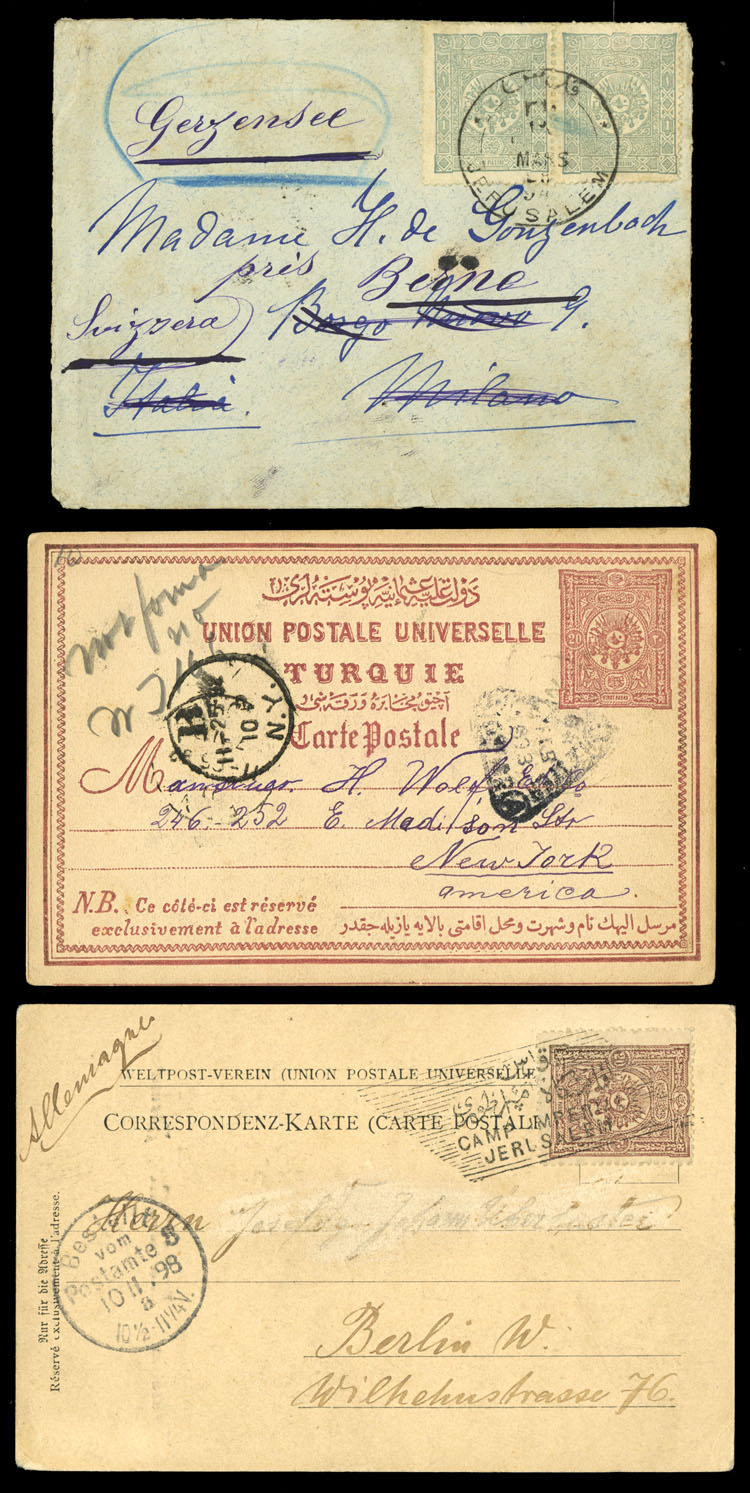 Gerzensee
قدس
MARS
JERUSALEM
Madame H. de Gonzenbach
près Berne
Svizzera Borgo Nuovo 9.
Italia. Milano
دولت علیه عثمانیه پوسته لری
UNION POSTALE UNIVERSELLE
20
TURQUIE
آچیق مخابره ورقه سی
Carte Postale
N.Y.
H. Wolf
246-252 E. Madison Str
New York
america.
N.B. Ce côté-ci est réservé
exclusivement à l'adresse
مرسل الیهك نام وشهرت ومحل اقامتی بالایه یازیله جقدر
Allemagne
WELTPOST-VEREIN (UNION POSTALE UNIVERSELLE
CORRESPONDENZ-KARTE (CARTE POSTALE
CAMP IMPERIAL
JERUSALEM
Herrn
Bestellt
vom
Postamte 8
10 11 98
10½-11¼V.
Berlin W.
Wilhelmstrasse 76.
Nur für die Adresse
Réservé exclusivement à l'adresse.